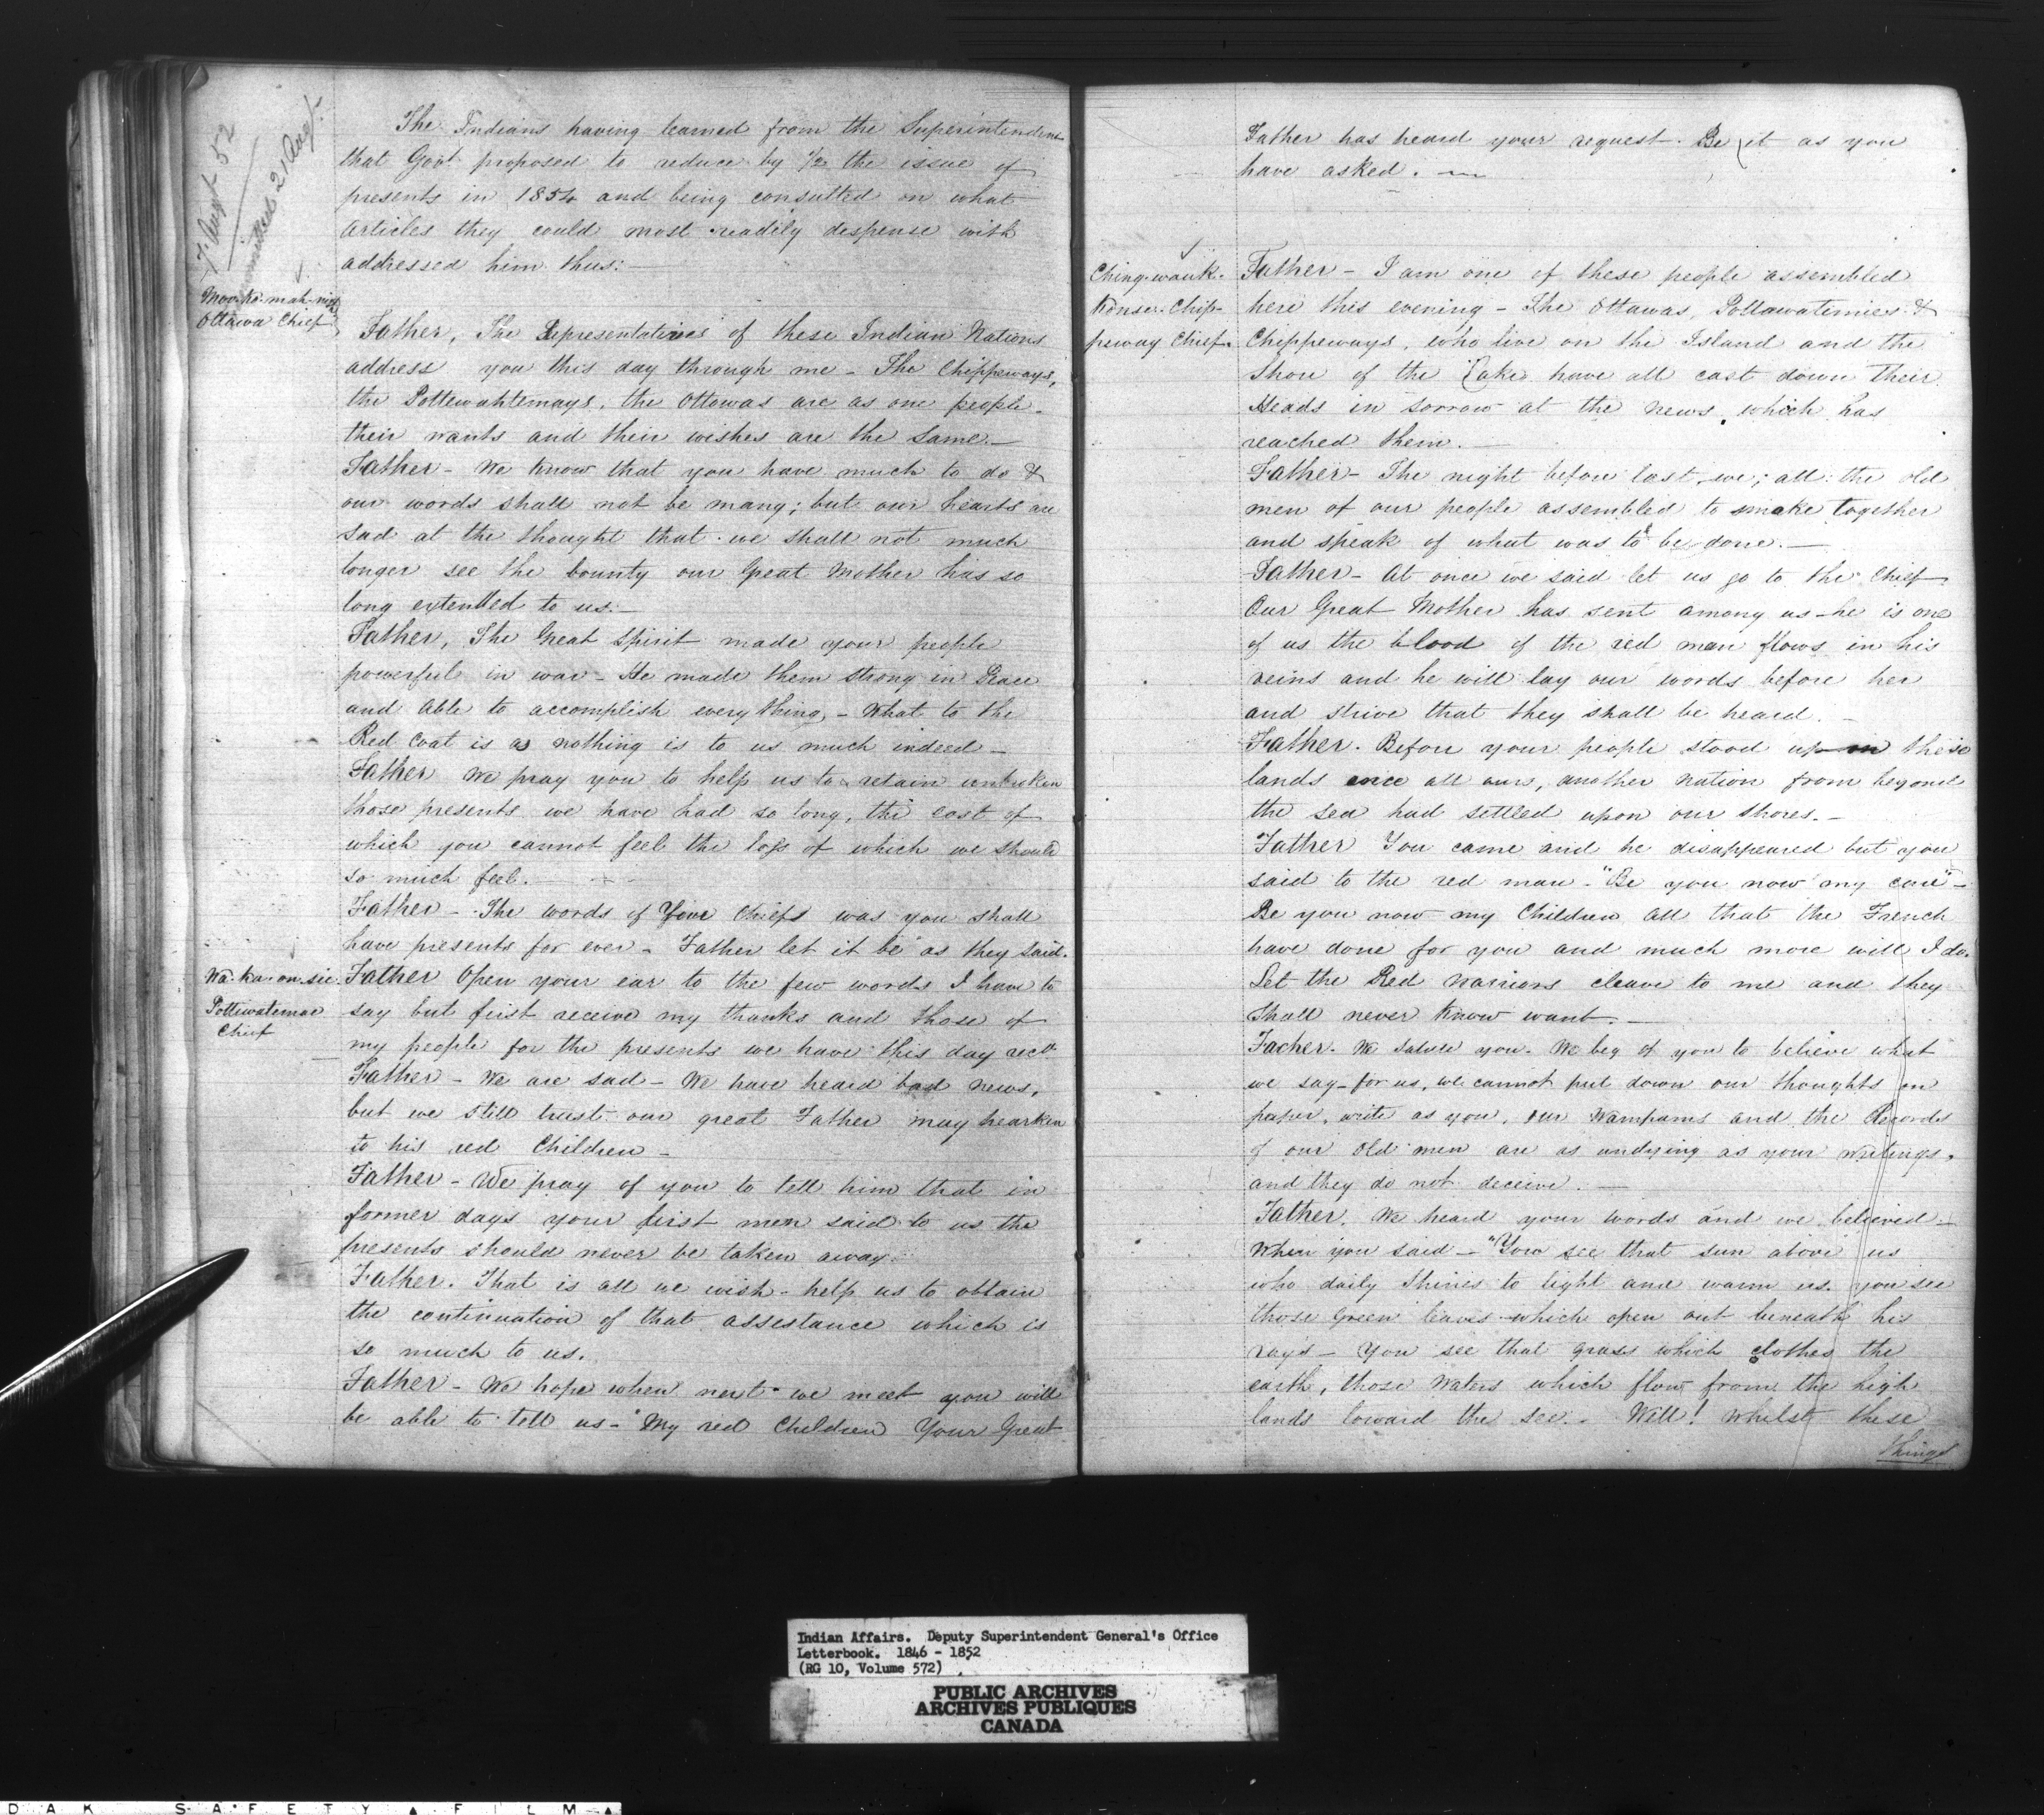 7 Augt 52
Transmitted 21 Augt
The Indians having learned from the Superintendent
that Govt proposed to reduce by 1/2 the issue of
presents in 1854 and being consulted on what
articles they could most readily dispense with
addressed him thus:—
Ottawa Chief
Father, The Representatives of these Indian Nations
address you this day through me – The Chippeways,
the Pottewahtemays, the Ottowas are as one people –
their wants and their wishes are the same.—
Father – We know that you have much to do &
our words shall not be many; but our hearts are
sad at the thought that we shall not much
longer see the bounty our Great Mother has so
long extended to us.—
Father, The Great Spirit made your people
powerful in war – He made them strong in Peace
and able to accomplish every thing, – What to the
Red Coat is as nothing is to us much indeed –
Father We pray you to help us to retain unbroken
those presents we have had so long, the cost of
which you cannot feel the loss of which we should
so much feel. —
Father – The words of Your Chiefs was you shall
have presents for ever – Father let it be as they said.
Wa-ka-on-sie
Pottiwatemae
Chief
Father Open your ear to the few words I have to
say but first receive my thanks and those of
my people for the presents we have this day recd
Father – We are sad – We have heard bad news,
but we still trust our great Father may hearken
to his red Children –
Father – We pray of you to tell him that in
former days your first men said to us the
presents should never be taken away.
Father. That is all we wish – help us to obtain
the continuation of that assestance which is
so much to us.
Father – We hope when next we meet you will
be able to tell us – "My red Children Your Great
Father has heard your request. Be it as you
have asked. —
Ching-wauk-
konse. Chip-
peway Chief.
Father – I am one of these people assembled
here this evening – The Ottawas, Pottawatimies &
Chippeways, who live on the Island and the
Shore of the Lake have all cast down their
Heads in sorrow at the news which has
reached them. —
Father – The night before last, we, all the old
men of our people assembled to smoke together
and speak of what was to be done. —
Father – At once we said let us go to the Chief
Our Great Mother has sent among us – he is one
of us the blood of the red man flows in his
veins and he will lay our words before her
and strive that they shall be heard. –
Father. Before your people stood upon these
lands once all ours, another nation from beyond
the sea had settled upon our shores. –
Father You came and he disappeared but you
said to the red man – "Be you now my care" –
Be you now my Children all that the French
have done for you and much more will I do.
Let the Red Warriors cleave to me and they
shall never know want. —
Father. We salute you. We beg of you to believe what
we say – for us, we cannot put down our thoughts on
paper, write as you, our Wampums and the Records
of our old men are as undying as your writings,
and they do not deceive. —
Father. We heard your words and we believed –
When you said – "You see that sun above us
who daily shines to light and warm us. you see
those green leaves which open out beneath his
rays – You see that grass which clothes the
earth, those Waters which flow from the high
lands toward the sea. – Well! Whilst these
things
Indian Affairs. Deputy Superintendent General's Office
Letterbook. 1846 - 1852
(RG 10, Volume 572)
PUBLIC ARCHIVES
ARCHIVES PUBLIQUES
CANADA
DAK SAFETY FILM